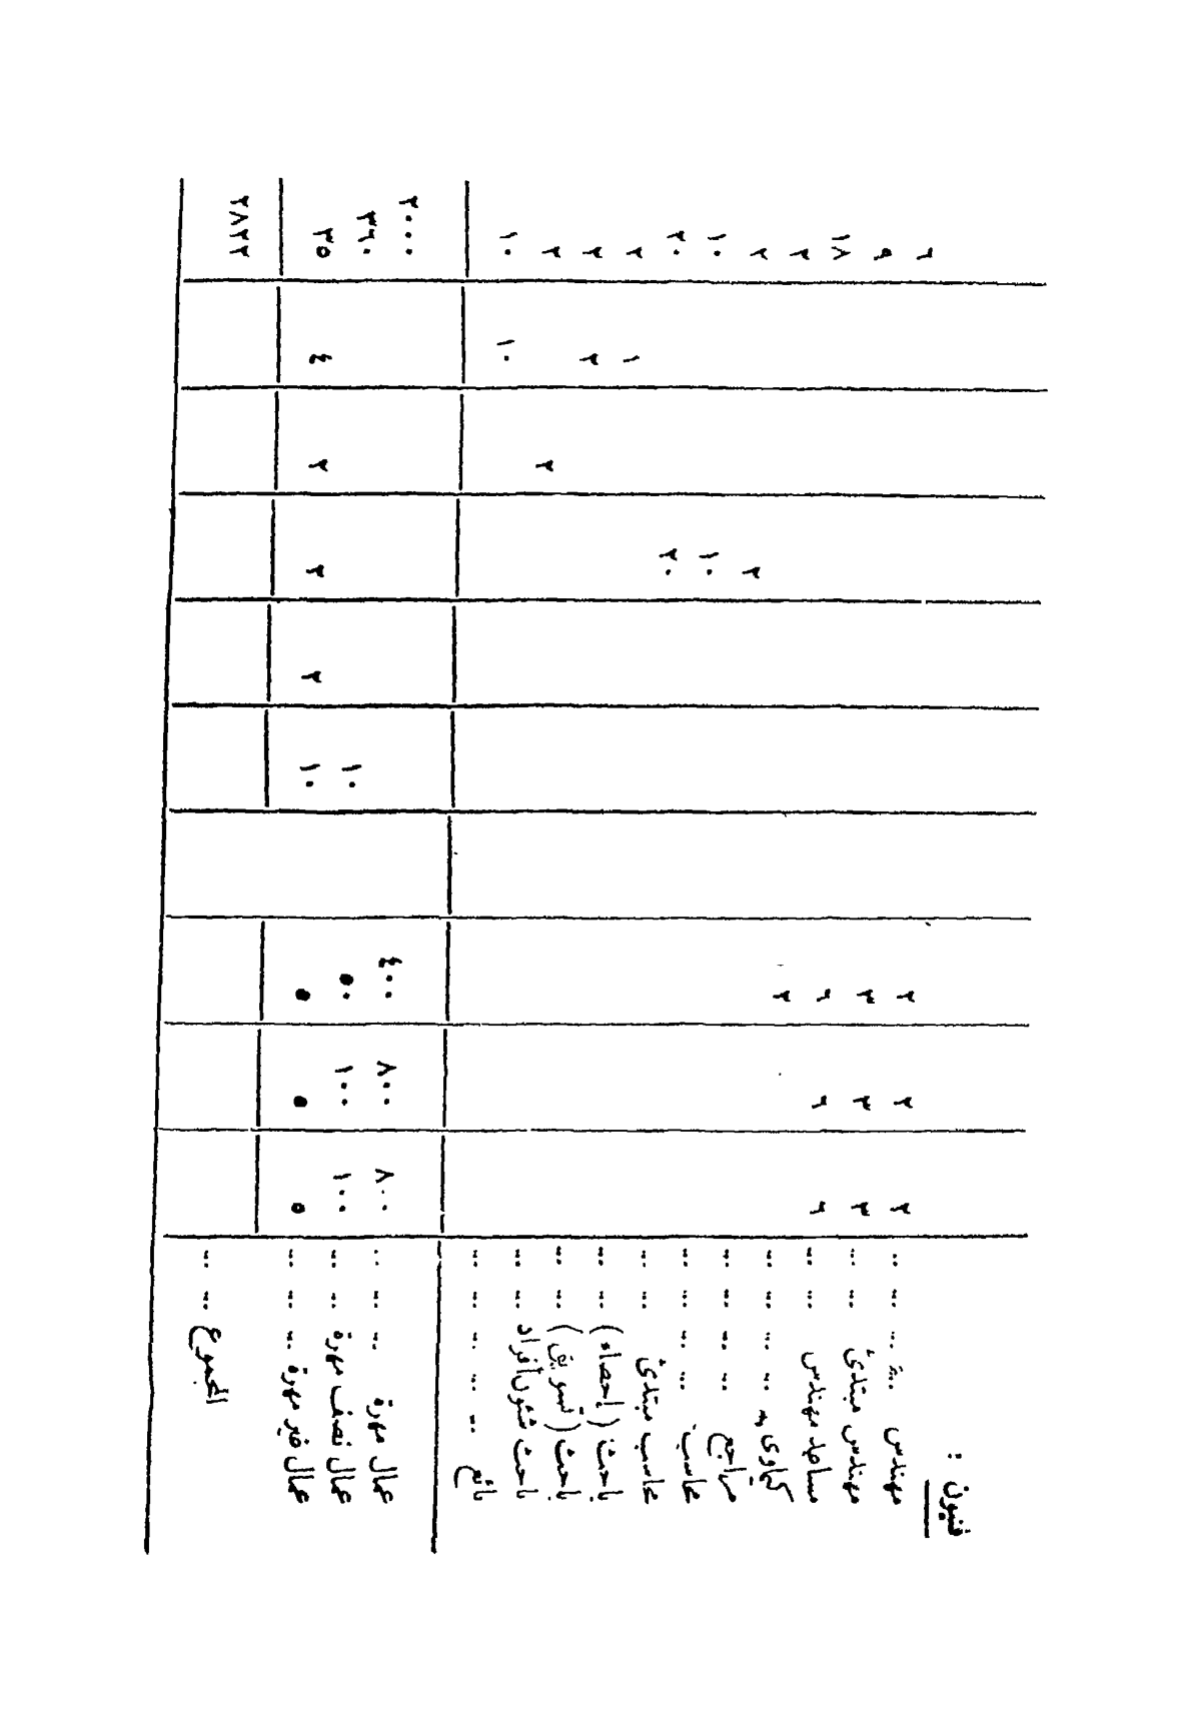 فنيون :
مهندس ٢ ٢ ٢ ٦
مهندس مبتدئ ٣ ٣ ٣ ٩
مساعد مهندس ٦ ٦ ٦ ١٨
كيماوى ٢ ٢
مراجع ٢ ٢
محاسب ١٠ ١٠
محاسب مبتدئ ٢٠ ٢٠
باحث (إحصاء) ١ ٢
باحث (تسويق) ٢ ٢
باحث شئون أفراد ٢ ٢
بائع ١٠ ١٠
عمال مهرة ٨٠٠ ٨٠٠ ٤٠٠ ٢٠٠٠
عمال نصف مهرة ١٠٠ ١٠٠ ٥٠ ١٠ ٣٦٠
عمال غير مهرة ٥ ٥ ٥ ١٠ ٢ ٢ ٢ ٤ ٣٥
المجموع ٢٨٢٢